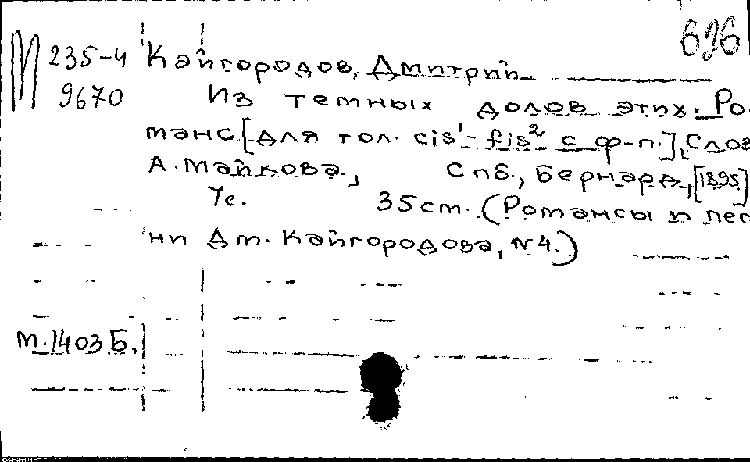 696
М 235-4 Кайгородов, Дмитрий
9670 Из темных долов этих. Ро-
манс. [Для гол. cis¹-fis² с ф-п.], Слов
А. Майкова., Спб., Бернард, [1895]
7с. 35cm. (Романсы и пес-
ни Дм. Кайгородова, №4.)
м.1403Б.